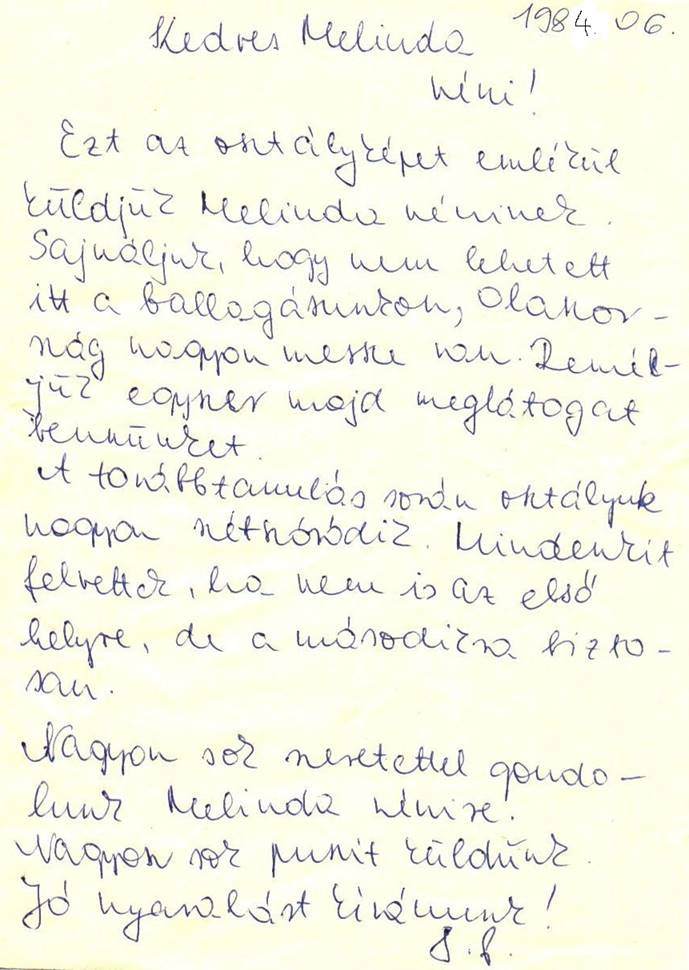 1984. 06.
Kedves Melinda
néni!
Ezt az osztályképet emlékül
küldjük Melinda néninek.
Sajnáljuk, hogy nem lehetett
itt a ballagásunkon, Olaszor-
szág nagyon messze van. Remél-
jük egyszer majd meglátogat
bennünket.
A továbbtanulás során osztályunk
nagyon szétszóródik. Mindenkit
felvettek, ha nem is az első
helyre, de a másodikra bizto-
san.
Nagyon sok szeretettel gondo-
lunk Melinda nénire.
Nagyon sok puszit küldünk.
Jó nyaralást kívánunk!